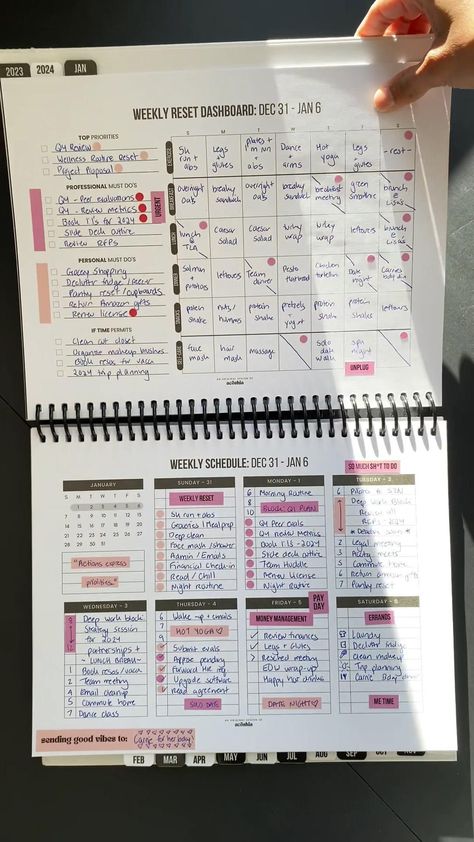 2023 2024 JAN
WEEKLY RESET DASHBOARD: DEC 31 - JAN 6
TOP PRIORITIES
Q4 Review
Wellness Routine Reset
Project Proposal
PROFESSIONAL MUST DO'S
Q4 - Peer evaluations
Q4 - Review metrics
Book TTs for 2024
Slide Deck outline
Review RFPs
URGENT
PERSONAL MUST DO'S
Grocery Shopping
Declutter fridge /
Pantry reset / cupboards
Return Amazon gifts
Renew license
IF TIME PERMITS
Clean out closet
Organize makeup brushes
Book resos for vaca
2024 trip planning
S M T W T F S
EXERCISE
5k run + abs
Legs + glutes
pilates + 1m run + abs
Dance + arms
Hot yoga
Legs + glutes
- rest -
BREAKFAST
overnight oats
breaky sandwich
overnight oats
breaky sandwich
breakfast meeting
green smoothie
brunch @ Lisa's
LUNCH
lunch @
Caesar salad
Caesar salad
wrap
wrap
leftovers
brunch @ Lisa's
DINNER
Salmon + potatoes
leftovers
Team dinner
Pesto
Chicken tortellini
Date night
Carries body day
SNACKS
protein shake
nuts / hummus
protein shake
pretzels + yogurt
protein shake
protein shake
leftovers
SELF-CARE
face mask
hair mask
massage
solo date walk
spa night
UNPLUG
AN ORIGINAL DESIGN BY
WEEKLY SCHEDULE: DEC 31 - JAN 6
SO MUCH SH*T TO DO
JANUARY
S M T W T F S
1 2 3 4 5 6
7 8 9 10 11 12 13
14 15 16 17 18 19 20
21 22 23 24 25 26 27
28 29 30 31
"Actions express
priorities"
SUNDAY - 31
WEEKLY RESET
5k run + abs
Groceries | Meal prep
Deep clean
Face mask / shower
Admin / Emails
Financial Check-in
Read / Chill
Night routine
MONDAY - 1
6 Morning Routine
8 BLOCK: Q1 PLAN
10
Q4 Peer evals
Q4 review metrics
Book TTs - 2024
Slide deck outline
Team Huddle
Renew License
Night Routine
TUESDAY - 2
6 Pilates +
Deep Work Block
RFPs - 2024
2 Legal meeting
3
5 Commute home
6 Return Amazon gifts
7 Pantry reset
WEDNESDAY - 3
9 Deep work block
Strategy session
for 2024
partnerships +
~ LUNCH BREAK ~
1 Book resos / vaca
2 Team meeting
4 Email cleanup
5 Commute home
7 Dance class
THURSDAY - 4
6 Wake up + emails
7 HOT YOGA
9
Submit evals
Approve pending
Forward the
Upgrade software
Read agreement
SOLO DATE
FRIDAY - 5
PAY DAY
MONEY MANAGEMENT
Review finances
Legs + Glutes
Resched meeting
EOW wrap-up
Happy hr drinks
DATE NIGHT
SATURDAY - 6
ERRANDS
Laundry
Declutter fridge
Clean makeup
Trip planning
Carrie Bday dinner
ME TIME
AN ORIGINAL DESIGN BY
sending good vibes to: Carrie for her bday!
FEB MAR APR MAY JUN JUL AUG SEP OCT NOV